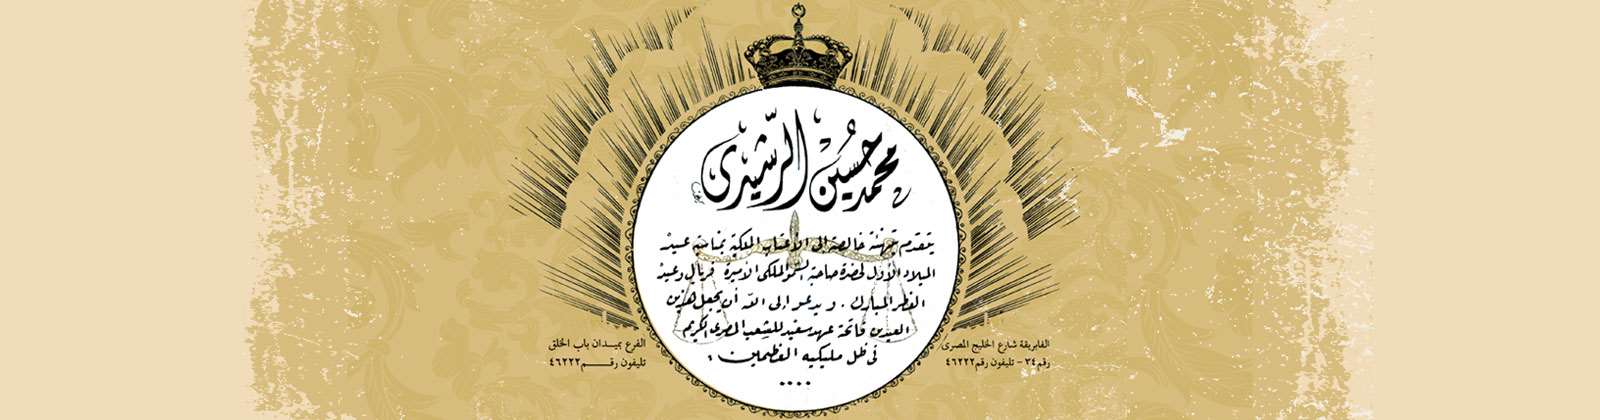 محمد حسين الرشيدى
يتقدم بتهنئة خالصة إلى الأعتاب الملكية بمناسبة عيد
الميلاد الأول لحضرة صاحبة السمو الملكى الأميرة فريال وعيد
الفطر المبارك . ويدعو إلى الله أن يجعل هذين
العيدين فاتحة عهد سعيد للشعب المصرى الكريم
فى ظل مليكيه العظيمين ؛
....
الفابريقة شارع الخليج المصرى
رقم ٣٤ - تليفون رقم ٤٦٢٢٢
الفرع بميدان باب الخلق
تليفون رقم ٤٦٢٢٢